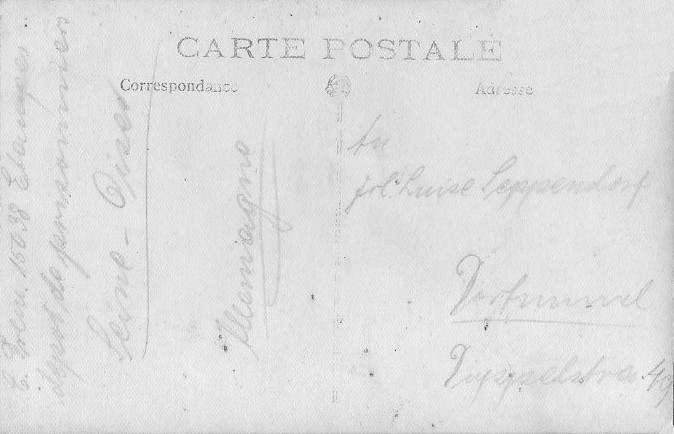 CARTE POSTALE
Correspondance
Adresse
An
frl. Luise Leppendorf
Dortmund
49
15038 Etampes
depot de prisonniers
Seine - Oise
Allemagne